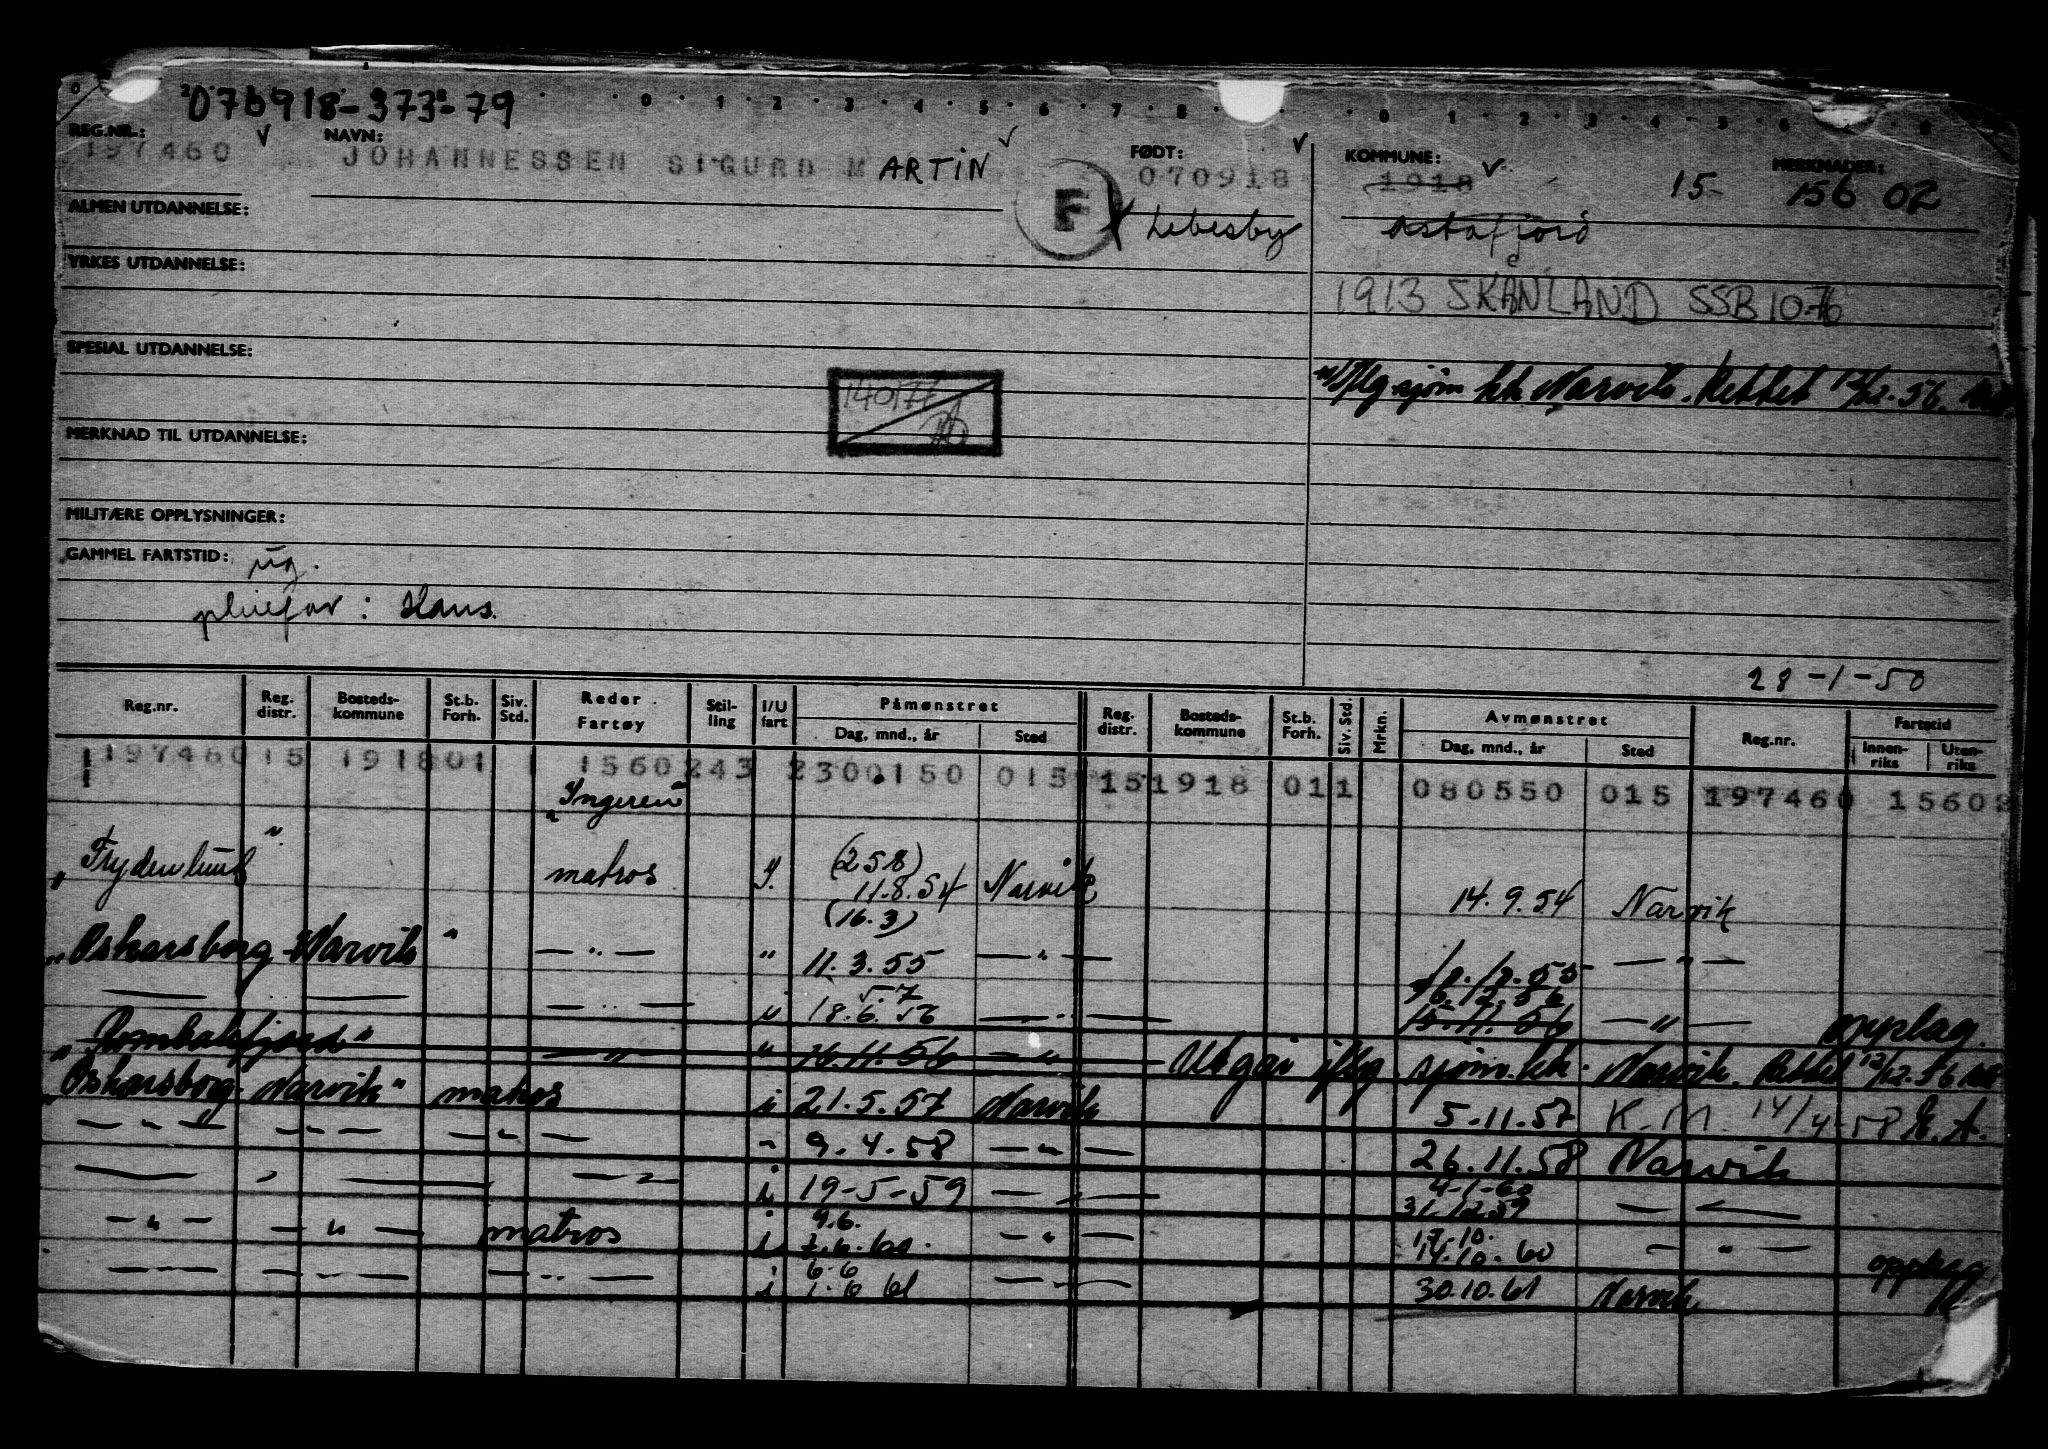 070918-373-79
REG.NR.: NAVN: FØDT: KOMMUNE: MERKNADER:
197460 JOHANNESSEN SIGURD MARTIN 070918 1918 15- 156 02
ALMEN UTDANNELSE: F Lebesby Astafjord
YRKES UTDANNELSE:
1913 SKÅNLAND SSB 10-76
SPESIAL UTDANNELSE:
140177
sjøm kk Narvik. Rettet 12/12.56.
MERKNAD TIL UTDANNELSE:
MILITÆRE OPPLYSNINGER:
GAMMEL FARTSTID: ug.
: Hans.
28-1-50
Reg.nr. Reg. distr. Bosteds-kommune St.b. Forh. Siv. Std. Reder Fartøy Stil-ling I/U fart Påmønstret Dag, mnd., år Sted Reg. distr. Bosteds-kommune St.b. Forh. Siv. Std. Mrkn. Avmønstret Dag, mnd., år Sted Reg.nr. Fartstid Innen-riks Uten-riks
197460 15 1918 01 1 1560 243 2 300150 015 15 1918 01 1 080550 015 197460 15602
"Ingeren"
"Frydenlund" matros I. (25 8) 11.8.54 Narvik 14.9.54 Narvik
"Oskarsborg Narvik" — " — " (16.3) 11.3.55 — " — — " —
— " — — " — 5.7 18.6.56 — " — 16.12.56 15.11.56 — " — opplag.
"Rombaksfjord" — " — " 16.11.56 — " — Utgår iflg. sjøm. kk. Narvik. Rettet 12/12.56
"Oskarsborg Narvik" matros i 21.5.57 Narvik 5.11.57 K.M. 14/4-58 E.A.
— " — — " — — " — " 9.4.58 — " — 26.11.58 Narvik
— " — — " — i 19-5-59 — " — 4-1-60 31.12.59 — " —
— " — — " — matros i 9.6. 7.6.60. — " — 17.10. 14.10.60 — " — opplag
— " — — " — — " — i 6.6 1.6 61 — " — 30.10.61 Narvik